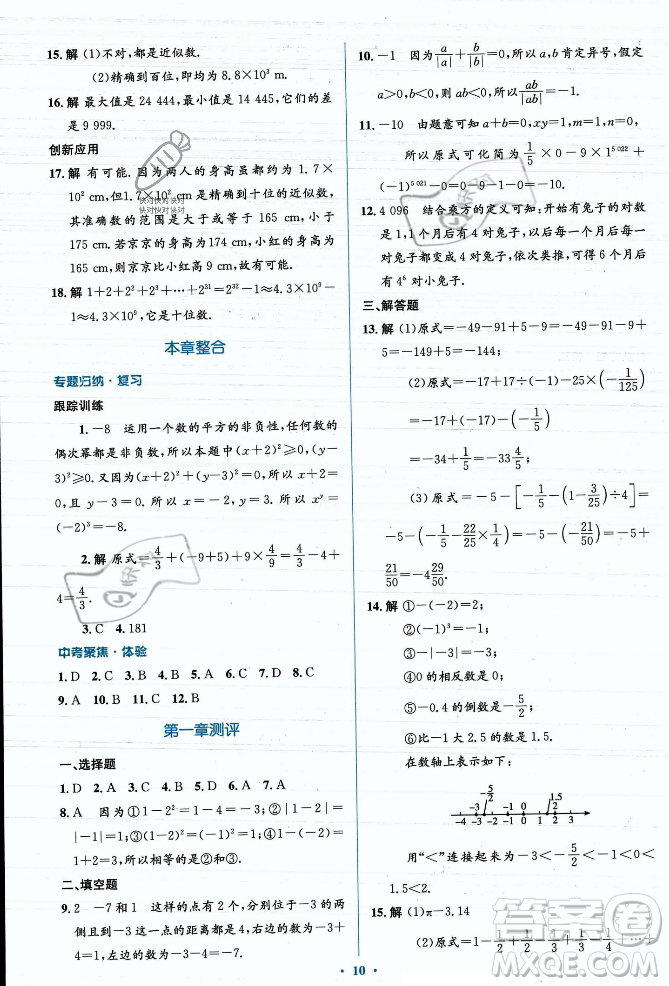 15. 解 (1)不对,都是近似数.
(2)精确到百位,即均为 8.8×10³ m.
16. 解 最大值是 24 444,最小值是 14 445,它们的差
是 9 999.
创新应用
17. 解 有可能. 因为两人的身高虽都为 1.7×
10² cm,但1.7×10² cm是精确到十位的近似数,
其准确数的范围是大于或等于 165 cm,小于
175 cm. 若京京的身高为 174 cm,小红的身高为
165 cm,则京京比小红高 9 cm,故有可能.
18. 解 1+2+2²+2³+…+2³¹=2³²−1=4.3×10⁹−
1≈4.3×10⁹(粒).
本章整合
专题归纳·复习
跟踪训练
1. −8 运用一个数的平方的非负性,任何数的
偶次幂都是非负数,所以本题中(x+2)²≥0,(y−
3)²≥0. 又因为(x+2)²+(y−3)²=0,所以 x+2=
0,y−3=0. 所以 x=−2,y=3. 所以 xʸ=
(−2)³=−8.
2. 解 原式=4/3+(−9+5)+9×4/9=4/3−4+
4=4/3.
3. C 4. 181
中考聚焦·体验
1. D 2. C 3. C 4. D 5. A 6. B 7. C 8. B
9. A 10. B 11. A 12. B
第一章测评
一、选择题
1. D 2. D 3. C 4. A 5. B 6. A 7. A
8. A 因为①1−2²=1−4=−3;②|−2|−
|−1|=1;③(1−2)²=(−1)²=1;④1−(−2)=
1+2=3,所以相等的是②③.
二、填空题
9. 2 −7和1 这样的点有2个,它们在−3的两
侧且到−3的距离都是4,右边的数为−3+
4=1,左边的数为−3−4=−7.
10. −1 因为a/|a|+b/|b|=0,所以 a,b 肯定异号,假定
a>0,b<0,则 ab<0,所以ab/|ab|=−1.
11. −10 由题意可知 a+b=0,xy=1,m=1,n=0,
所以原式可化简为 1/5×0−9×1⁵ ⁰²²+
(−1)⁵ ⁰²¹−0=0−9−1=−10.
12. 4 096 结合乘方的定义可知:开始有兔子的对数
是1,1个月后有4对兔子,以后每一个月后一
对兔子都变成4对兔子,依次类推,可得6个月后
有 4⁶ 对小兔子.
三、解答题
13. 解 (1)原式=−49−91+5−9=−149+5=
−5−149=−144.
(2)原式=−17+17÷(−1)−5×(−1/125)
=−17−17−(−1/5)
=−34+1/5=−33 4/5.
(3)原式=−5−[−1/5−(1−3/25)÷4]=
−5−(−1/5−22/25×1/4)=−5−(−21/50)=−5+
21/50=−4 29/50.
14. 解 ①−(−2)=2;
②(−1)³=−1;
③−|−3|=−3;
④0的相反数是0;
⑤−0.4的倒数是−5/2;
⑥比−1大2.5的数是1.5.
在数轴上表示如下:
−5/2 1.5
−3 −1 0 2
−4 −3 −2 −1 0 1 2 3 4
用“<”连接起来为−3<−5/2<−1<0<
1.5<2.
15. 解 (1)π−3.14
(2)原式=1−1/2+1/2
快对快对快对
快对快对快对
答案卷
MXQE.COM
10